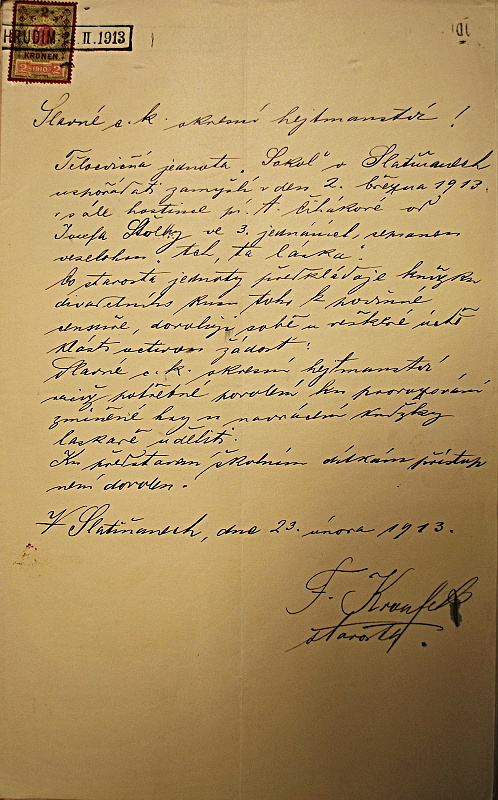 2
HRUDIM II.1913
KRONEN
2 1910 2
Slavné c. k. okresní hejtmanství!
Tělocvičná jednota „Sokol" v Slatiňanech
uspořádati zamýšlí v den 2. března 1913.
v sále hostince pí. A. Čihákové od
Josefa Štolby ve 3. jednáních, sepsanou
veselohru „Ach, ta láska".
Co starosta jednoty předkládaje knížku
divadelního kusu toho k povinné
censuře, dovoluji sobě v veškeré úctě
klásti uctivou žádost:
Slavné c. k. okresní hejtmanství
račiž potřebné povolení ku provozování
zmíněné hry a navrácení knížky
laskavě uděliti.
Ku představení školním dítkám přístup
není dovolen.
V Slatiňanech, dne 23. února 1913.
F.
starosta.